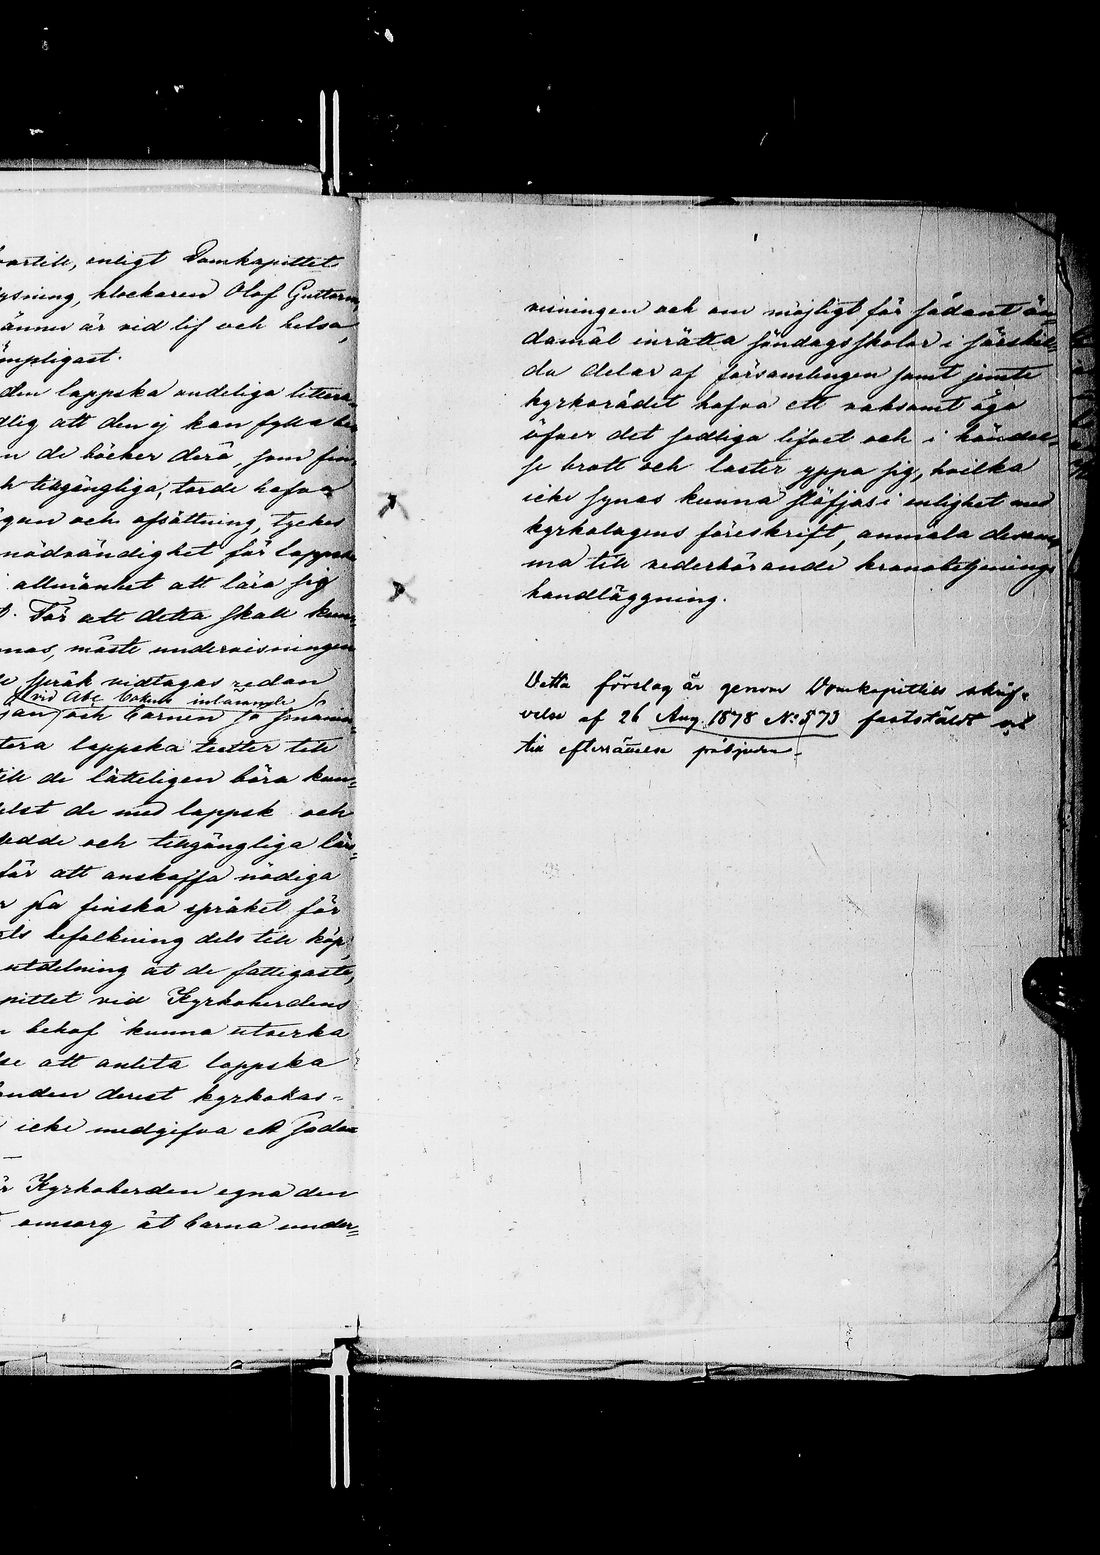 vartill, enligt Domkapitlet
ysning, klockaren Olof Guttorm,
ännu är vid lif och helsa,
ämpligast.
den lappska andeliga littera-
dlig att den ej kan fylla be-
n de böcker derå, som fin-
h tillgängliga, torde hafva
gan och afsättning, tyckes
nödvändighet för lappska
allmänhet att lära sig
För att detta skall kun-
nas, måste undervisningen
språk vidtagas redan
vid Abc bokens inlärande
och barnen
tera lappska texter till
till de lätteligen böra kun-
elst de med lappsk och
edde och tillgängliga lär-
för att anskaffa nödiga
r på finska språket för
ls befolkning dels till köp,
utdelning åt de fattigaste,
pittlet vid Kyrkoherdens
n behof kunna utverka
se att anlita lappska
anden derest kyrkokas-
icke medgifva ett sådan
r Kyrkoherden egna den
omsorg åt barna under-
visningen och om möjligt för sådant än-
damål inrätta söndagsskolor i särskil-
da delar af församlingen samt jemte
kyrkorådet hafva ett vaksamt öga
öfver det sedliga lifvet och i händel-
se brott och laster yppa sig, hvilka
icke synas kunna i enlighet med
kyrkolagens föreskrift, anmäla desam-
ma till vederbörande kronobetjenings
handläggning.
Detta förslag är genom Domkapitlets skrif-
velse af 26 Aug. 1878 No 873 fastställdt och
till efterrättelse påbjudna.